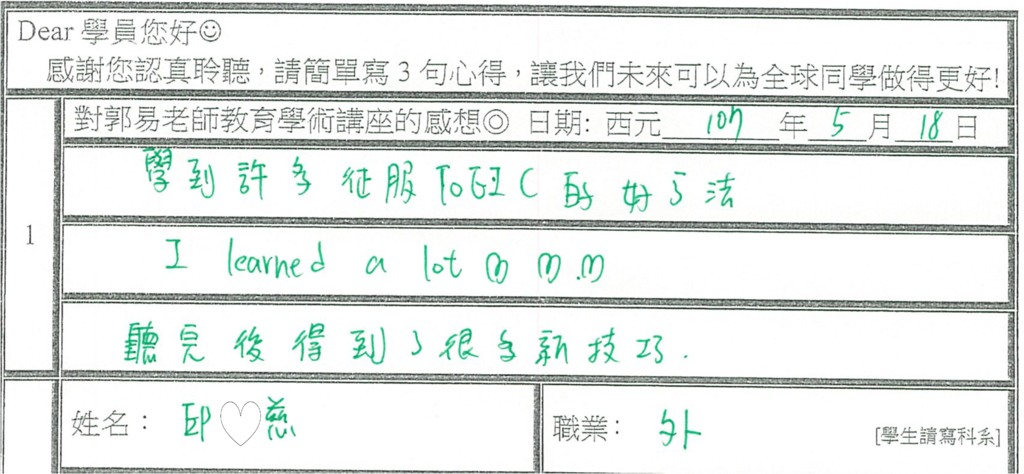 Dear 學員您好☺
感謝您認真聆聽，請簡單寫 3 句心得，讓我們未來可以為全球同學做得更好!
1
對郭易老師教育學術講座的感想◎ 日期: 西元 107 年 5 月 18 日
學到許多征服TOEIC的好方法
I learned a lot
聽完後得到了很多新技巧.
姓名： 邱♡慈
職業： 外 [學生請寫科系]